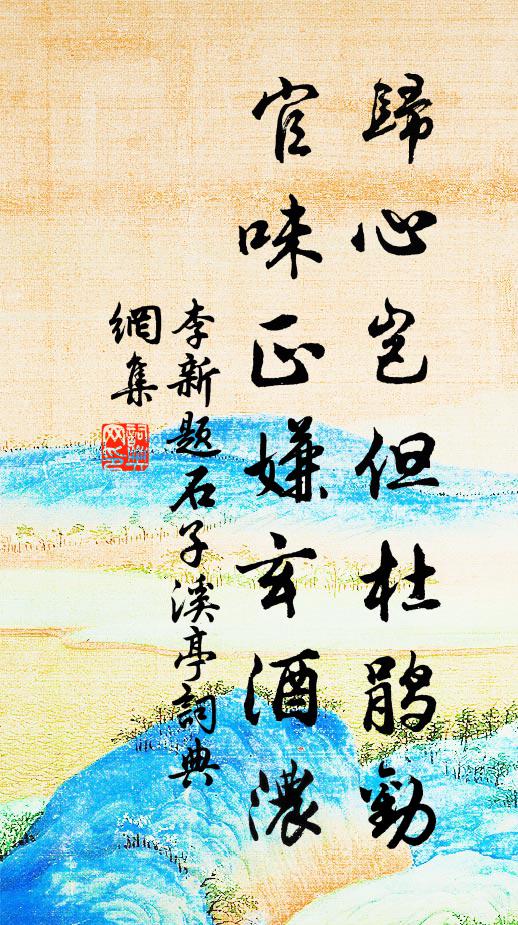 歸心豈但杜鵑勸
官味正嫌玄酒濃
李新題石子溪亭詞典
網集